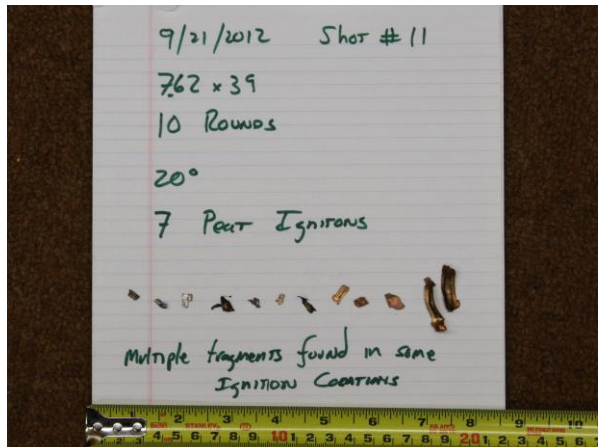 9/21/2012 Shot # 11
7.62 x 39
10 Rounds
20°
7 Peat Ignitons
Multiple fragments found in some
Ignition Locations
1 2 3 4 5 6 7 8 9 10
STANLEY
4 5 6 7 8 9 10 1 2 3 4 5 6 7 8 9 20 1 2 3 4 5 6